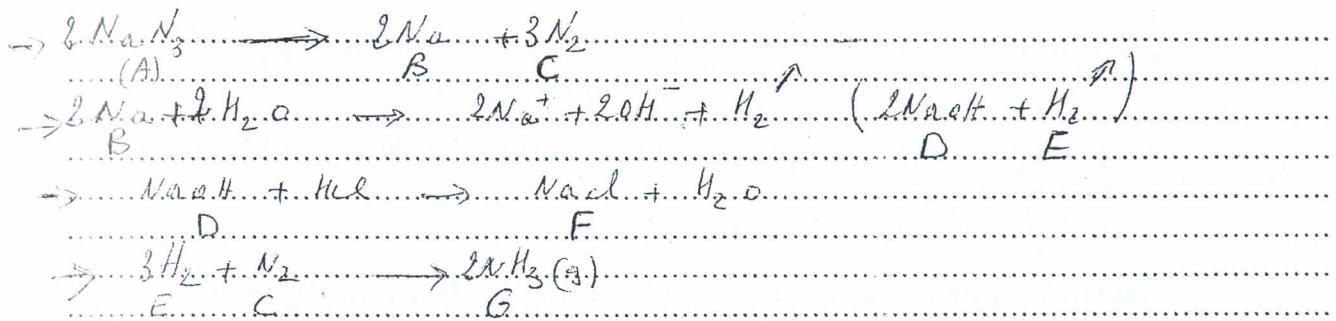 → 2NaN₃ → 2Na + 3N₂
(A) B C
→ 2Na + 2H₂O → 2Na⁺ + 2OH⁻ + H₂↗ (2NaOH + H₂↗)
B D E
→ NaOH + HCl → NaCl + H₂O
D F
→ 3H₂ + N₂ → 2NH₃(g)
E C G